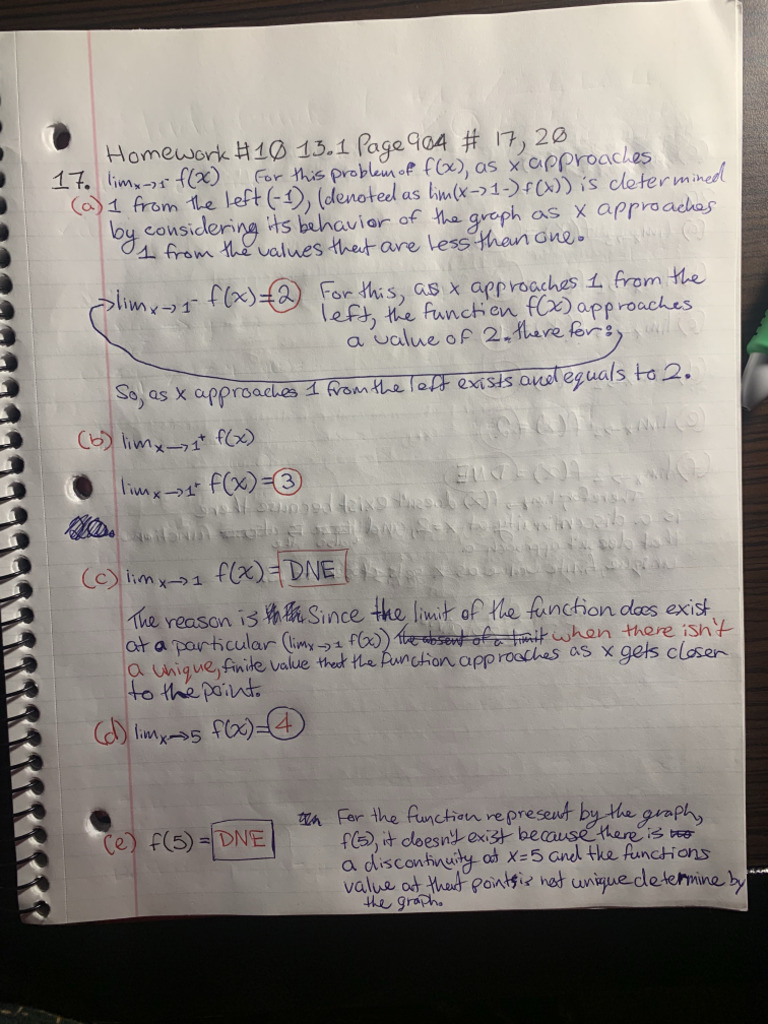 Homework #10 13.1 Page 904 # 17, 20
17. lim x→1⁻ f(x) For this problem of f(x), as x approaches
(a) 1 from the left (-1), (denoted as lim(x→1-) f(x)) is determined
by considering its behavior of the graph as x approaches
1 from the values that are less than one.
lim x→1⁻ f(x)=2 For this, as x approaches 1 from the
left, the function f(x) approaches
a value of 2. there for:
So, as x approaches 1 from the left exists and equals to 2.
(b) lim x→1⁺ f(x)
lim x→1⁺ f(x)=3
(c) lim x→1 f(x)=DNE
The reason is Since the limit of the function does exist
at a particular (lim x→1 f(x)) the absent of a limit when there isn't
a unique, finite value that the function approaches as x gets closer
to the point.
(d) lim x→5 f(x)=4
(e) f(5)=DNE For the function represent by the graph,
f(5), it doesn't exist because there is
a discontinuity at x=5 and the functions
value at that point is not unique determine by
the graph.